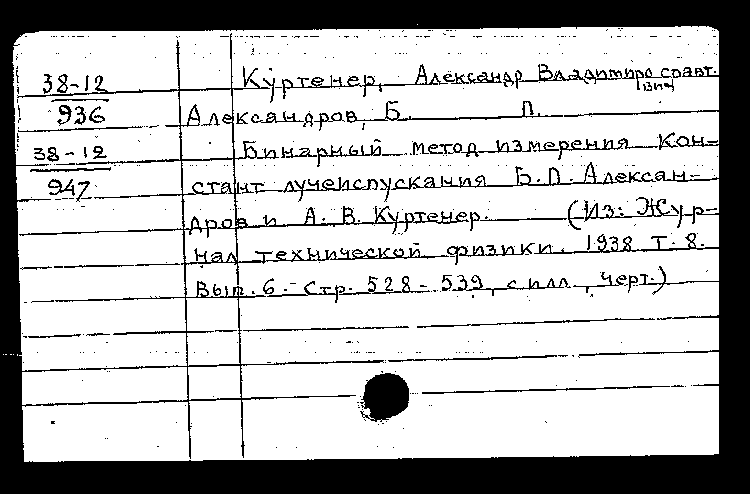 38-12 Куртенер, Александр Владимиро соавт.
вич
936 Александров, Б. П.
38-12 Бинарный метод измерения кон-
947 стант лучеиспускания Б.П. Алексан-
дров и А. В. Куртенер. (Из: Жур-
нал технической физики. 1938 Т. 8.
Вып. 6.- Стр. 528-539, с илл., черт.)